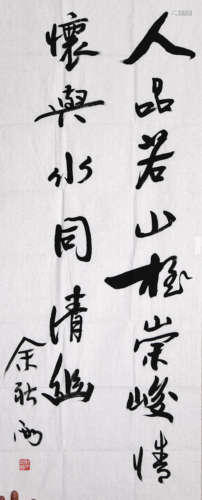 人品若山極崇峻情
懷與水同清幽
余秋雨